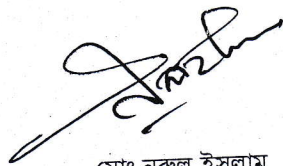 মোঃ নুরুল ইসলাম